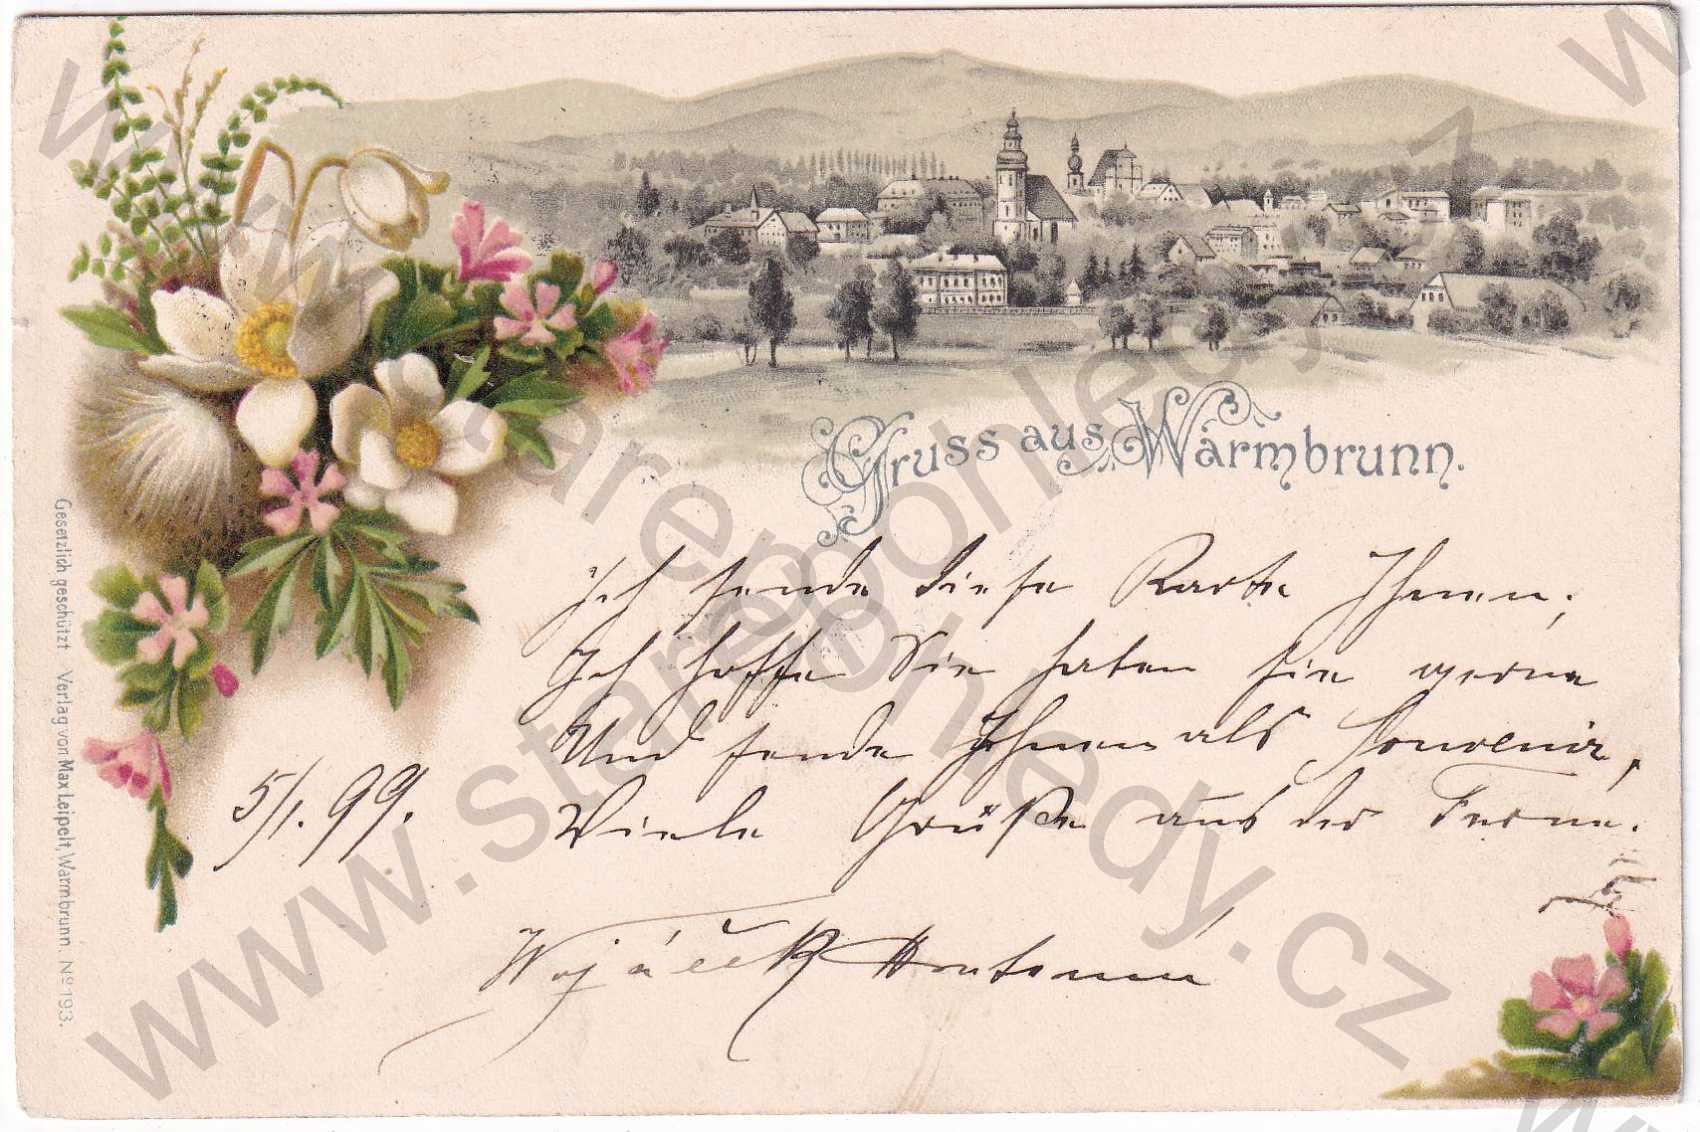 Gruss aus Warmbrunn.
Ich sende diese Karte Ihnen,
Ich hoffe Sie haben sie gerne
Und sende Ihnen als Souvenir,
5/1. 99. Viele Grüße aus der Ferne.
Wojáček
Gesetzlich geschützt Verlag von Max Leipelt, Warmbrunn Nº 193.
www.starepohledy.cz
www.starepohledy.cz